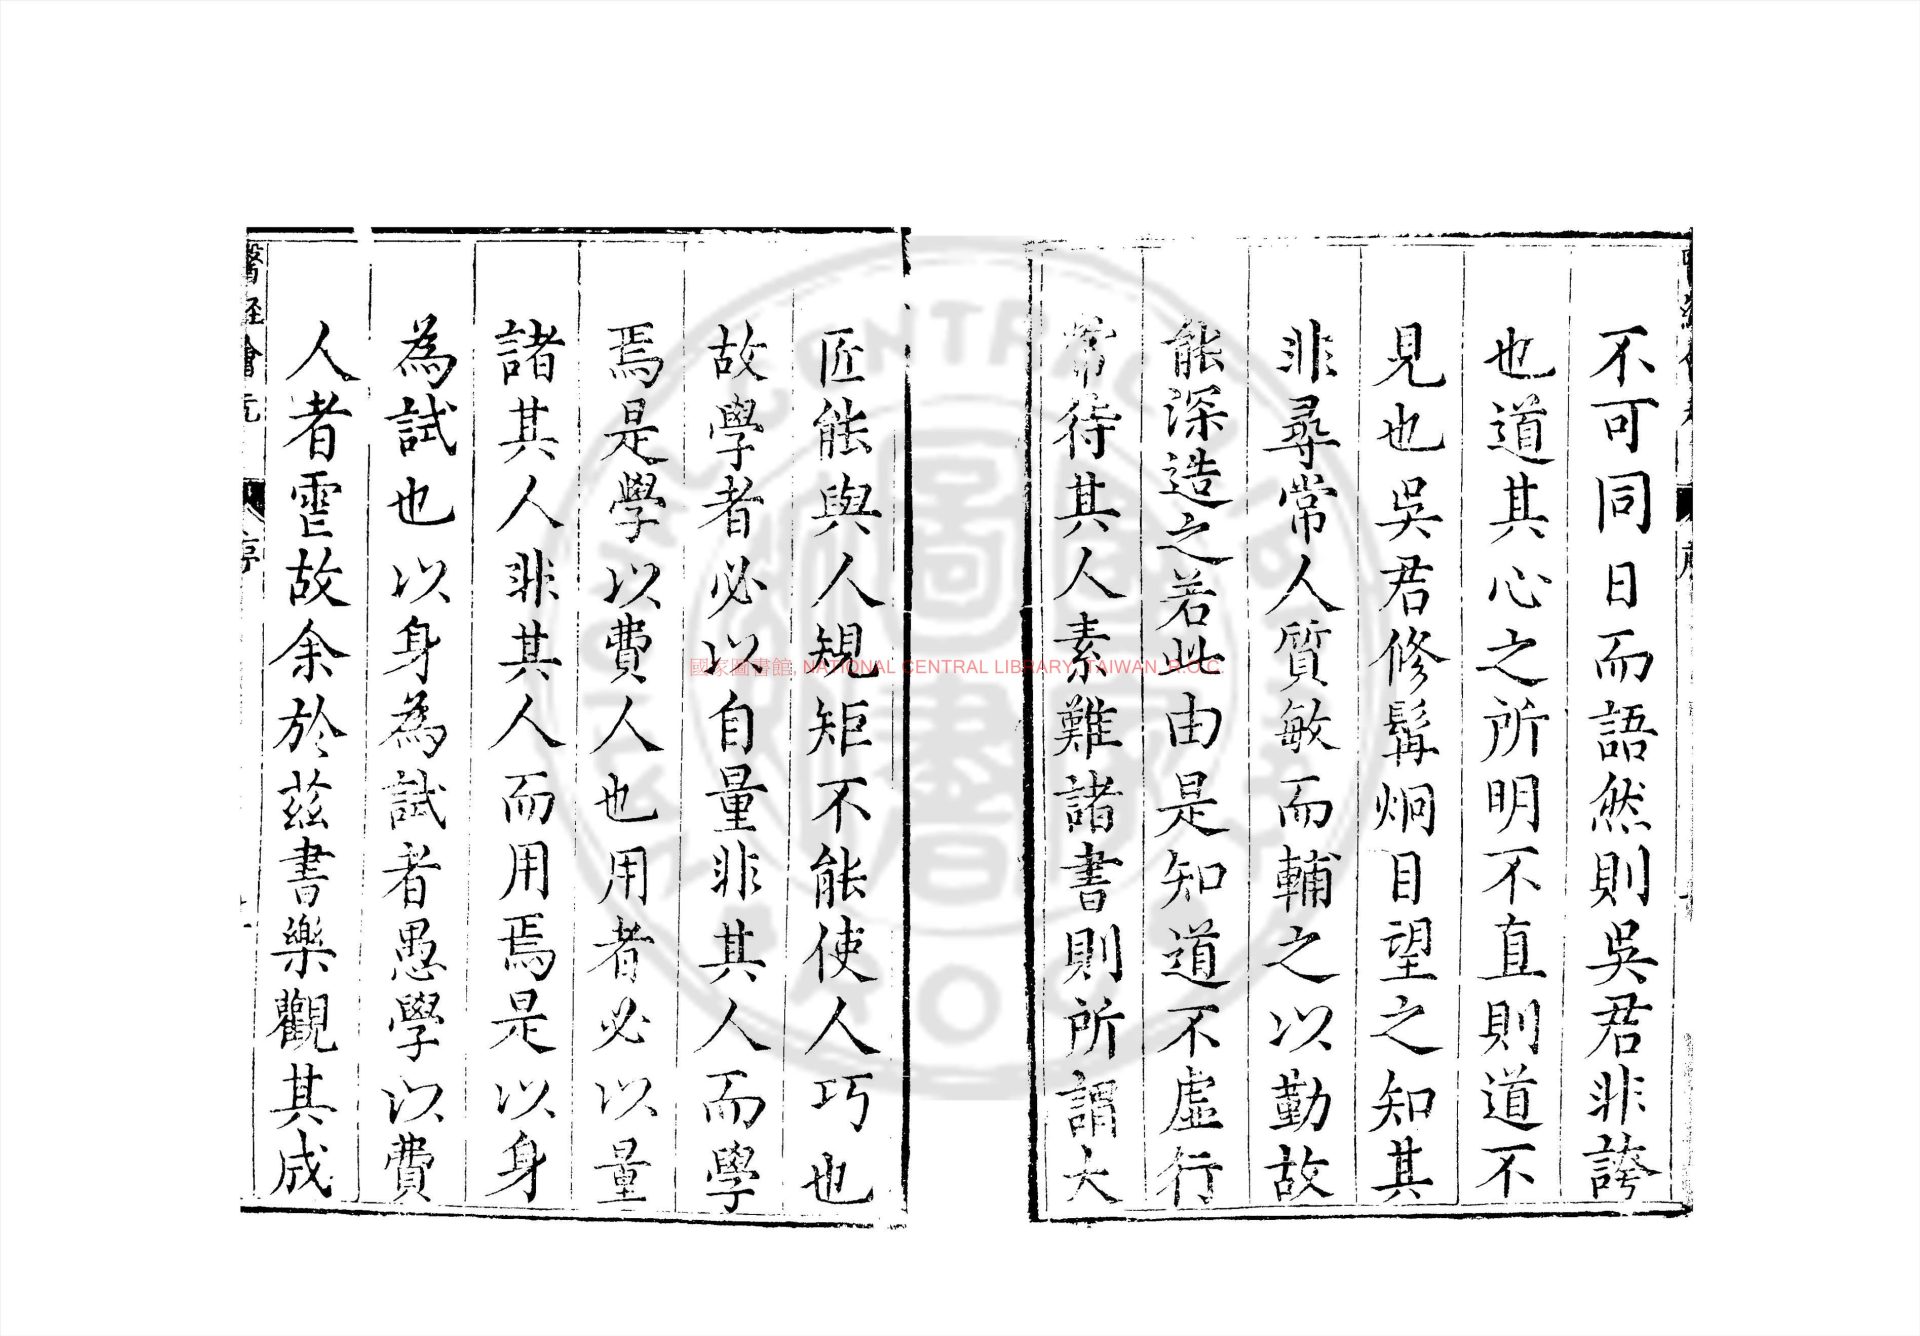 不可同日而語然則吳君非誇
也道其心之所明不直則道不
見也吳君修髯炯目望之知其
非尋常人質敏而輔之以勤故
能深造之若此由是知道不虛行
常待其人素難諸書則所謂大
匠能與人規矩不能使人巧也
故學者必以自量非其人而學
焉是學以費人也用者必以量
諸其人非其人而用焉是以身
為試也以身為試者愚學以費
人者霍故余於茲書樂觀其成
醫經會元
序
國家圖書館, NATIONAL CENTRAL LIBRARY, TAIWAN, R.O.C.